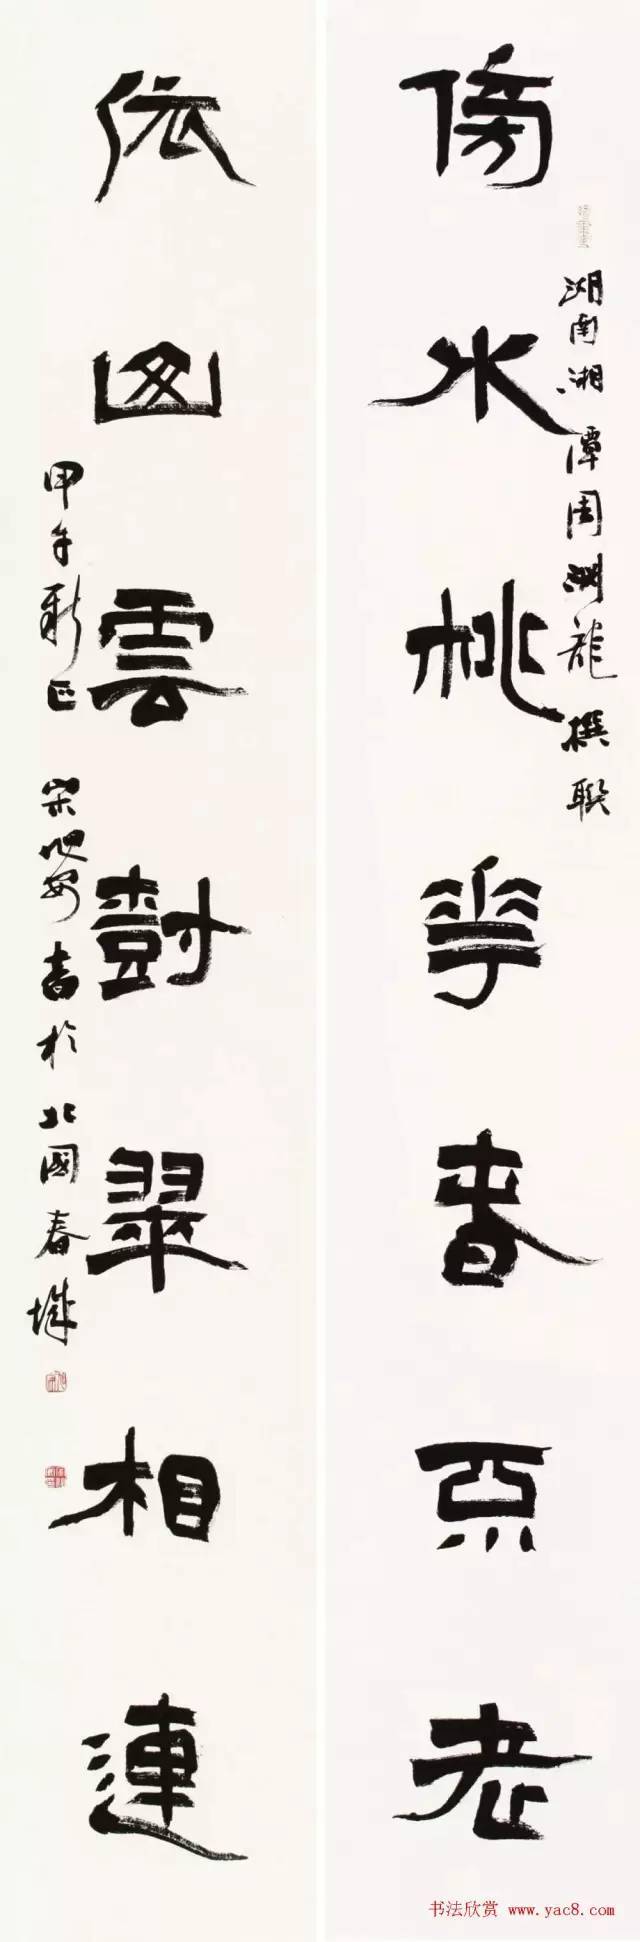 傍水桃花春老
湖南湘潭周渊龍撰聯
依雲尌翠相連
甲午新正 宋旭安書於北國春城
书法欣赏 www.yac8.com